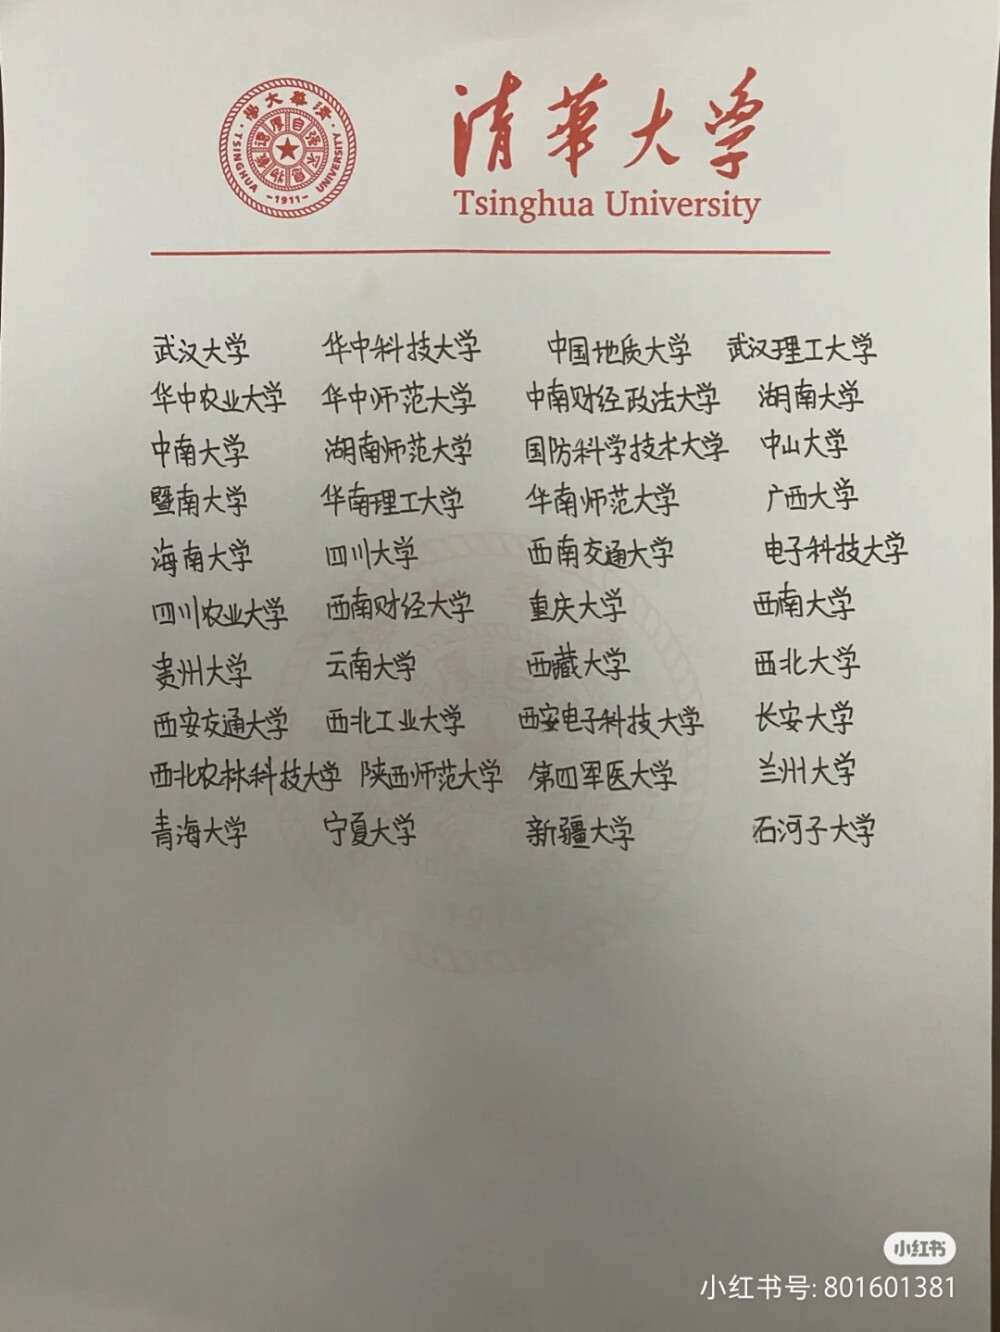 清華大学
Tsinghua University
清華大學
TSINGHUA UNIVERSITY
自强不息
厚德载物
-1911-
武汉大学 华中科技大学 中国地质大学 武汉理工大学
华中农业大学 华中师范大学 中南财经政法大学 湖南大学
中南大学 湖南师范大学 国防科学技术大学 中山大学
暨南大学 华南理工大学 华南师范大学 广西大学
海南大学 四川大学 西南交通大学 电子科技大学
四川农业大学 西南财经大学 重庆大学 西南大学
贵州大学 云南大学 西藏大学 西北大学
西安交通大学 西北工业大学 西安电子科技大学 长安大学
西北农林科技大学 陕西师范大学 第四军医大学 兰州大学
青海大学 宁夏大学 新疆大学 石河子大学
小红书
小红书号: 801601381